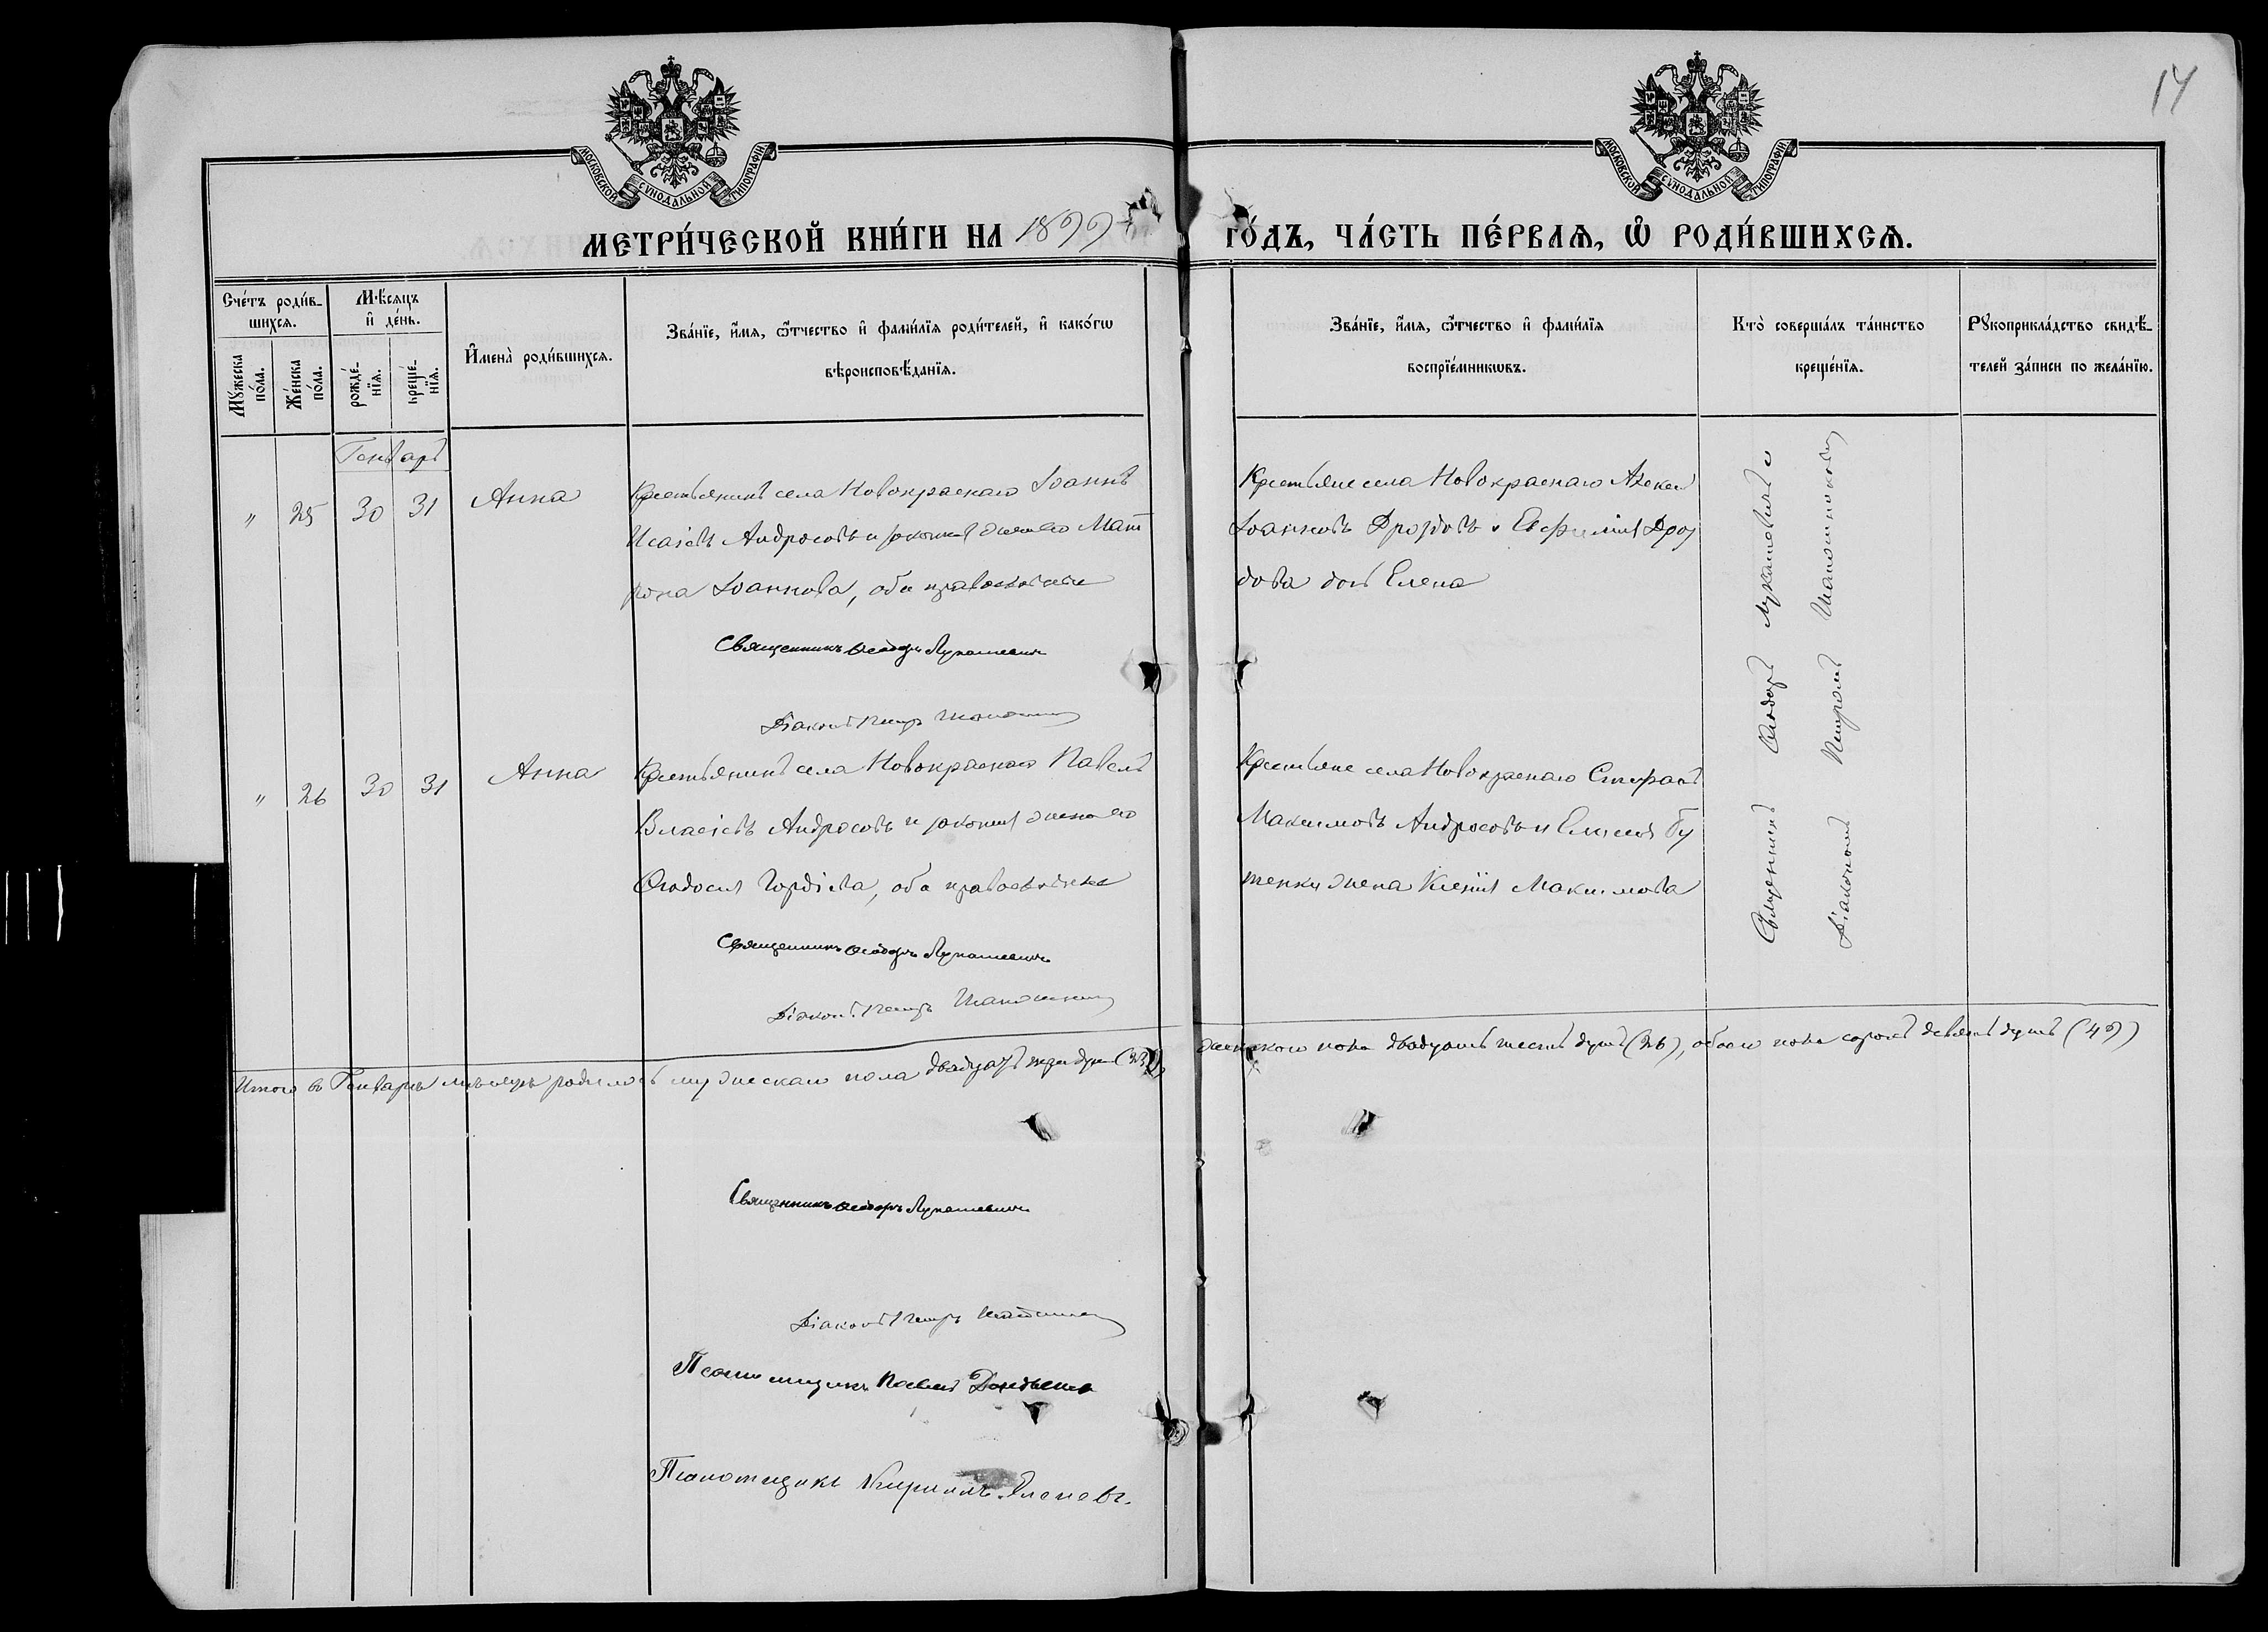 14
МОСКОВСКОЙ СѴНОДАЛЬНОЙ ТИПОГРАФІИ
МОСКОВСКОЙ СѴНОДАЛЬНОЙ ТИПОГРАФІИ
МЕТРИ́ЧЕСКОЙ КНИ́ГИ НА 1899 ГО́ДЪ, ЧА́СТЬ ПЕ́РВАѦ, Ѡ҆ РОДИ́ВШИХСѦ.
Сче́тъ роди́в-
шихсѧ.
Мꙋ́жеска
по́ла.
Же́нска
по́ла.
Мѣ́сѧцъ
и҆ де́нь.
рожде́-
нїѧ.
креще́-
нїѧ.
И҆мена̀ роди́вшихсѧ.
Зва́нїе, и҆́мѧ, ѻ҆́тчество и҆ фами́лїѧ роди́телей, и҆ како́гѡ
вѣроисповѣ́данїѧ.
Зва́нїе, и҆́мѧ, ѻ҆́тчество и҆ фами́лїѧ
воспрїе́мникѡвъ.
Кто̀ соверша́лъ та́инство
креще́нїѧ.
Рꙋкоприкла́дство свидѣ́-
телей за́писи по жела́нїю.
Генварь
" 25 30 31 Анна
Крестьянинъ села Новокраснаго Іоаннъ
Исаіевъ Андросовъ и законная жена его Мат
рона Іоаннова, оба православные
Священникъ Ѳеодоръ Лукашевичъ
Діаконъ Петръ
Крестьяне села Новокраснаго Алексей
Іоанновъ Дроздовъ и Евфимія Дроз
дова дочь Елена
" 26 30 31 Анна
Крестьянинъ села Новокраснаго Павелъ
Власіевъ Андросовъ и законная жена его
Ѳеодосія Гордіева, оба православные
Священникъ Ѳеодоръ Лукашевичъ
Діаконъ Петръ
Крестьяне села Новокраснаго Стефанъ
Максимовъ Андросовъ и Елисея Бу
тенки жена Ксенія Максимова
Священникъ Ѳеодоръ Лукашевичъ с
Діакономъ Петромъ
Итого въ Генварѣ мѣсяцѣ родилось мужескаго пола двадцать три души (23), женскаго пола двадцать шесть душъ (26), обоего пола сорокъ девять душъ (49)
Священникъ Ѳеодоръ Лукашевичъ
Діаконъ Петръ
Псаломщикъ Павелъ
Псаломщикъ Кириллъ